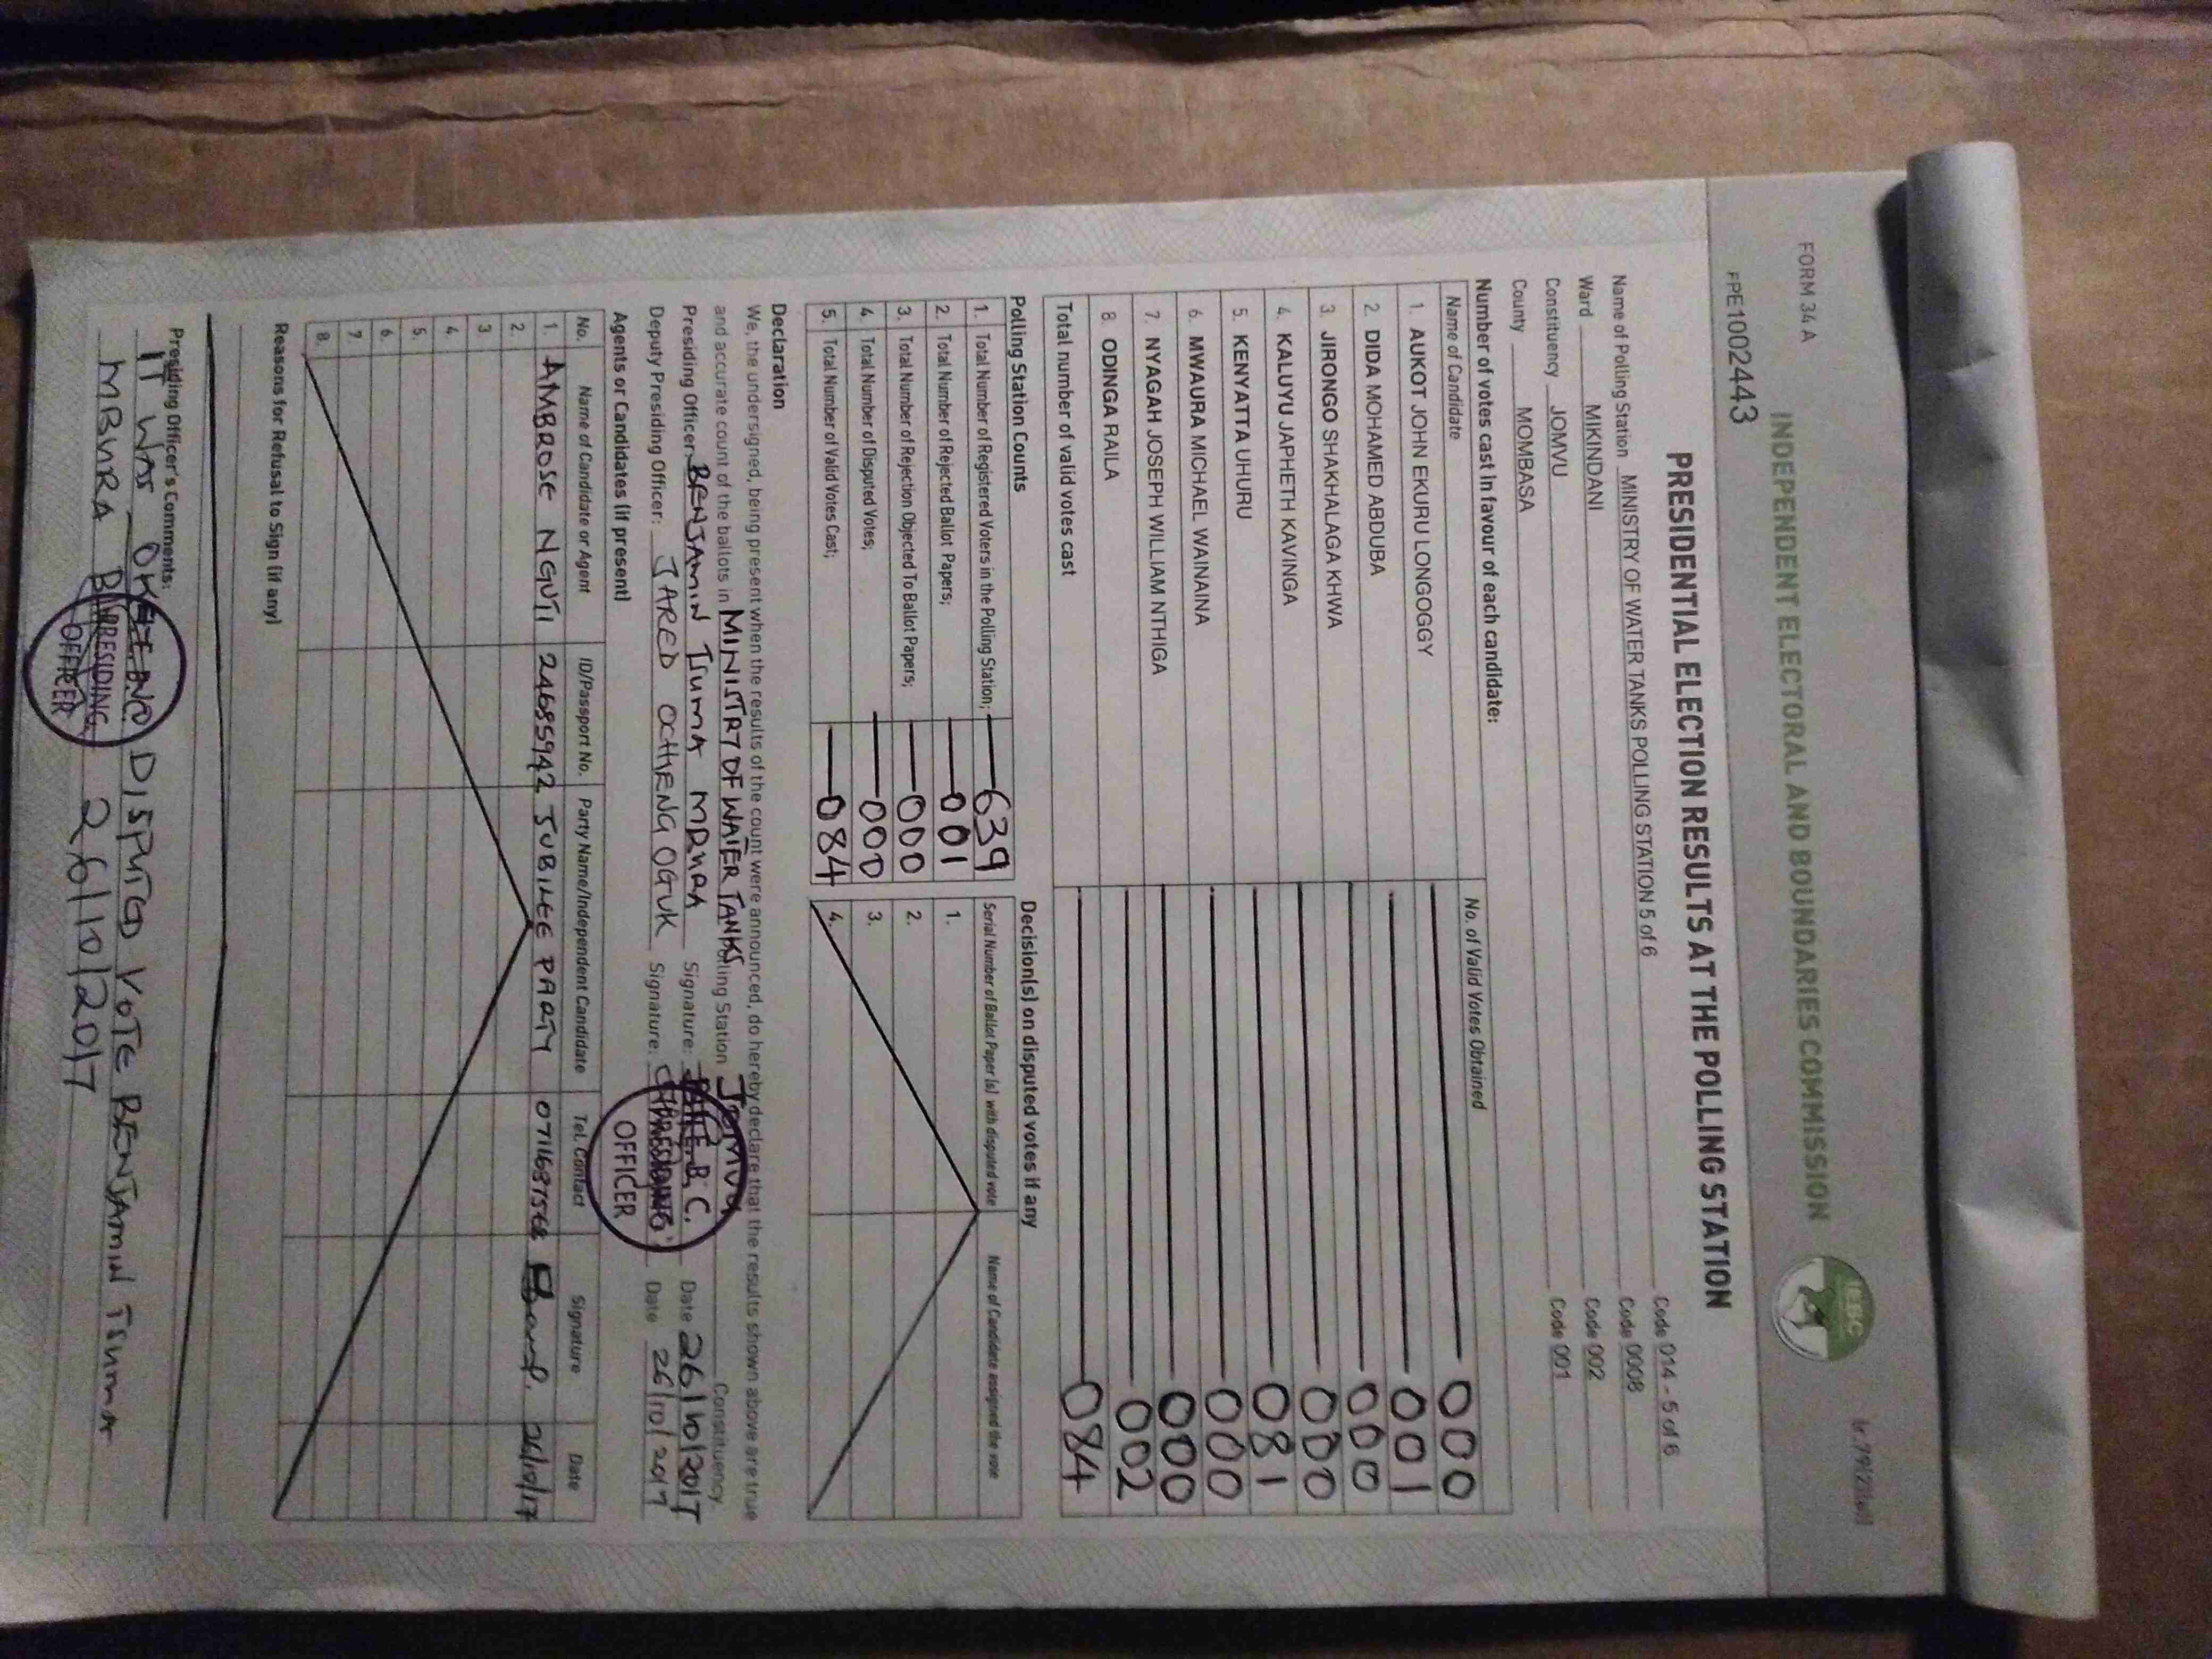 FORM 34 A
INDEPENDENT ELECTORAL AND BOUNDARIES COMMISSION
IEBC
FPE1002443
PRESIDENTIAL ELECTION RESULTS AT THE POLLING STATION
Name of Polling Station MINISTRY OF WATER TANKS POLLING STATION 5 of 6 Code 014 - 5 of 6
Ward MIKINDANI Code 0008
Constituency JOMVU Code 002
County MOMBASA Code 001
Number of votes cast in favour of each candidate:
Name of Candidate No. of Valid Votes Obtained
1. AUKOT JOHN EKURU LONGOGGY 000
2. DIDA MOHAMED ABDUBA 001
3. JIRONGO SHAKHALAGA KHWA 000
4. KALUYU JAPHETH KAVINGA 000
5. KENYATTA UHURU 081
6. MWAURA MICHAEL WAINAINA 000
7. NYAGAH JOSEPH WILLIAM NTHIGA 000
8. ODINGA RAILA 002
Total number of valid votes cast 084
Polling Station Counts
1. Total Number of Registered Voters in the Polling Station; 639
2. Total Number of Rejected Ballot Papers; 001
3. Total Number of Rejection Objected To Ballot Papers; 000
4. Total Number of Disputed Votes; 000
5. Total Number of Valid Votes Cast; 084
Decision(s) on disputed votes if any
Serial Number of Ballot Paper (s) with disputed vote Name of Candidate assigned the vote
1.
2.
3.
4.
Declaration
We, the undersigned, being present when the results of the count were announced, do hereby declare that the results shown above are true
and accurate count of the ballots in MINISTRY OF WATER TANKS Polling Station Jomvu Constituency
Presiding Officer: BENJAMIN TSUMA MBURA Signature: Date 26/10/2017
Deputy Presiding Officer: JARED OCHIENG OGUK Signature: Date 26/10/2017
PRESIDING OFFICER
Agents or Candidates (if present)
No. Name of Candidate or Agent ID/Passport No. Party Name/Independent Candidate Tel. Contact Signature Date
1. AMBROSE NGUTI 24685942 JUBILEE PARTY 0711687568 26/10/17
2.
3
4
5.
6.
7
8.
Reasons for Refusal to Sign (if any)
Presiding Officer's Comments:
IT WAS OK NO DISPUTED VOTE BENJAMIN TSUMA
MBURA 26/10/2017
PRESIDING OFFICER